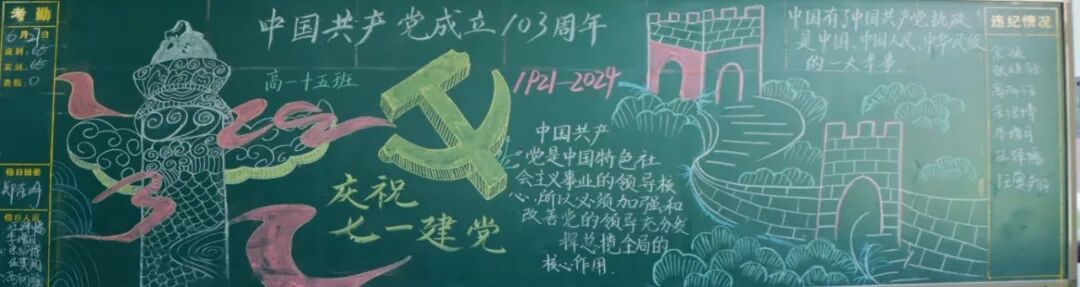 考勤
6月27日
应到: 65
实到: 65
数假: 0
值日班委
值日人员
中国共产党成立103周年
高一十五班
1921-2024
庆祝
七一建党
中国共产
党是中国特色社
会主义事业的领导核
心,所以必须加强和
改善党的领导充分发
挥总揽全局的
核心作用.
中国有了中国共产党执政
是中国、中国人民、中华民族
的一大幸事.
违纪情况